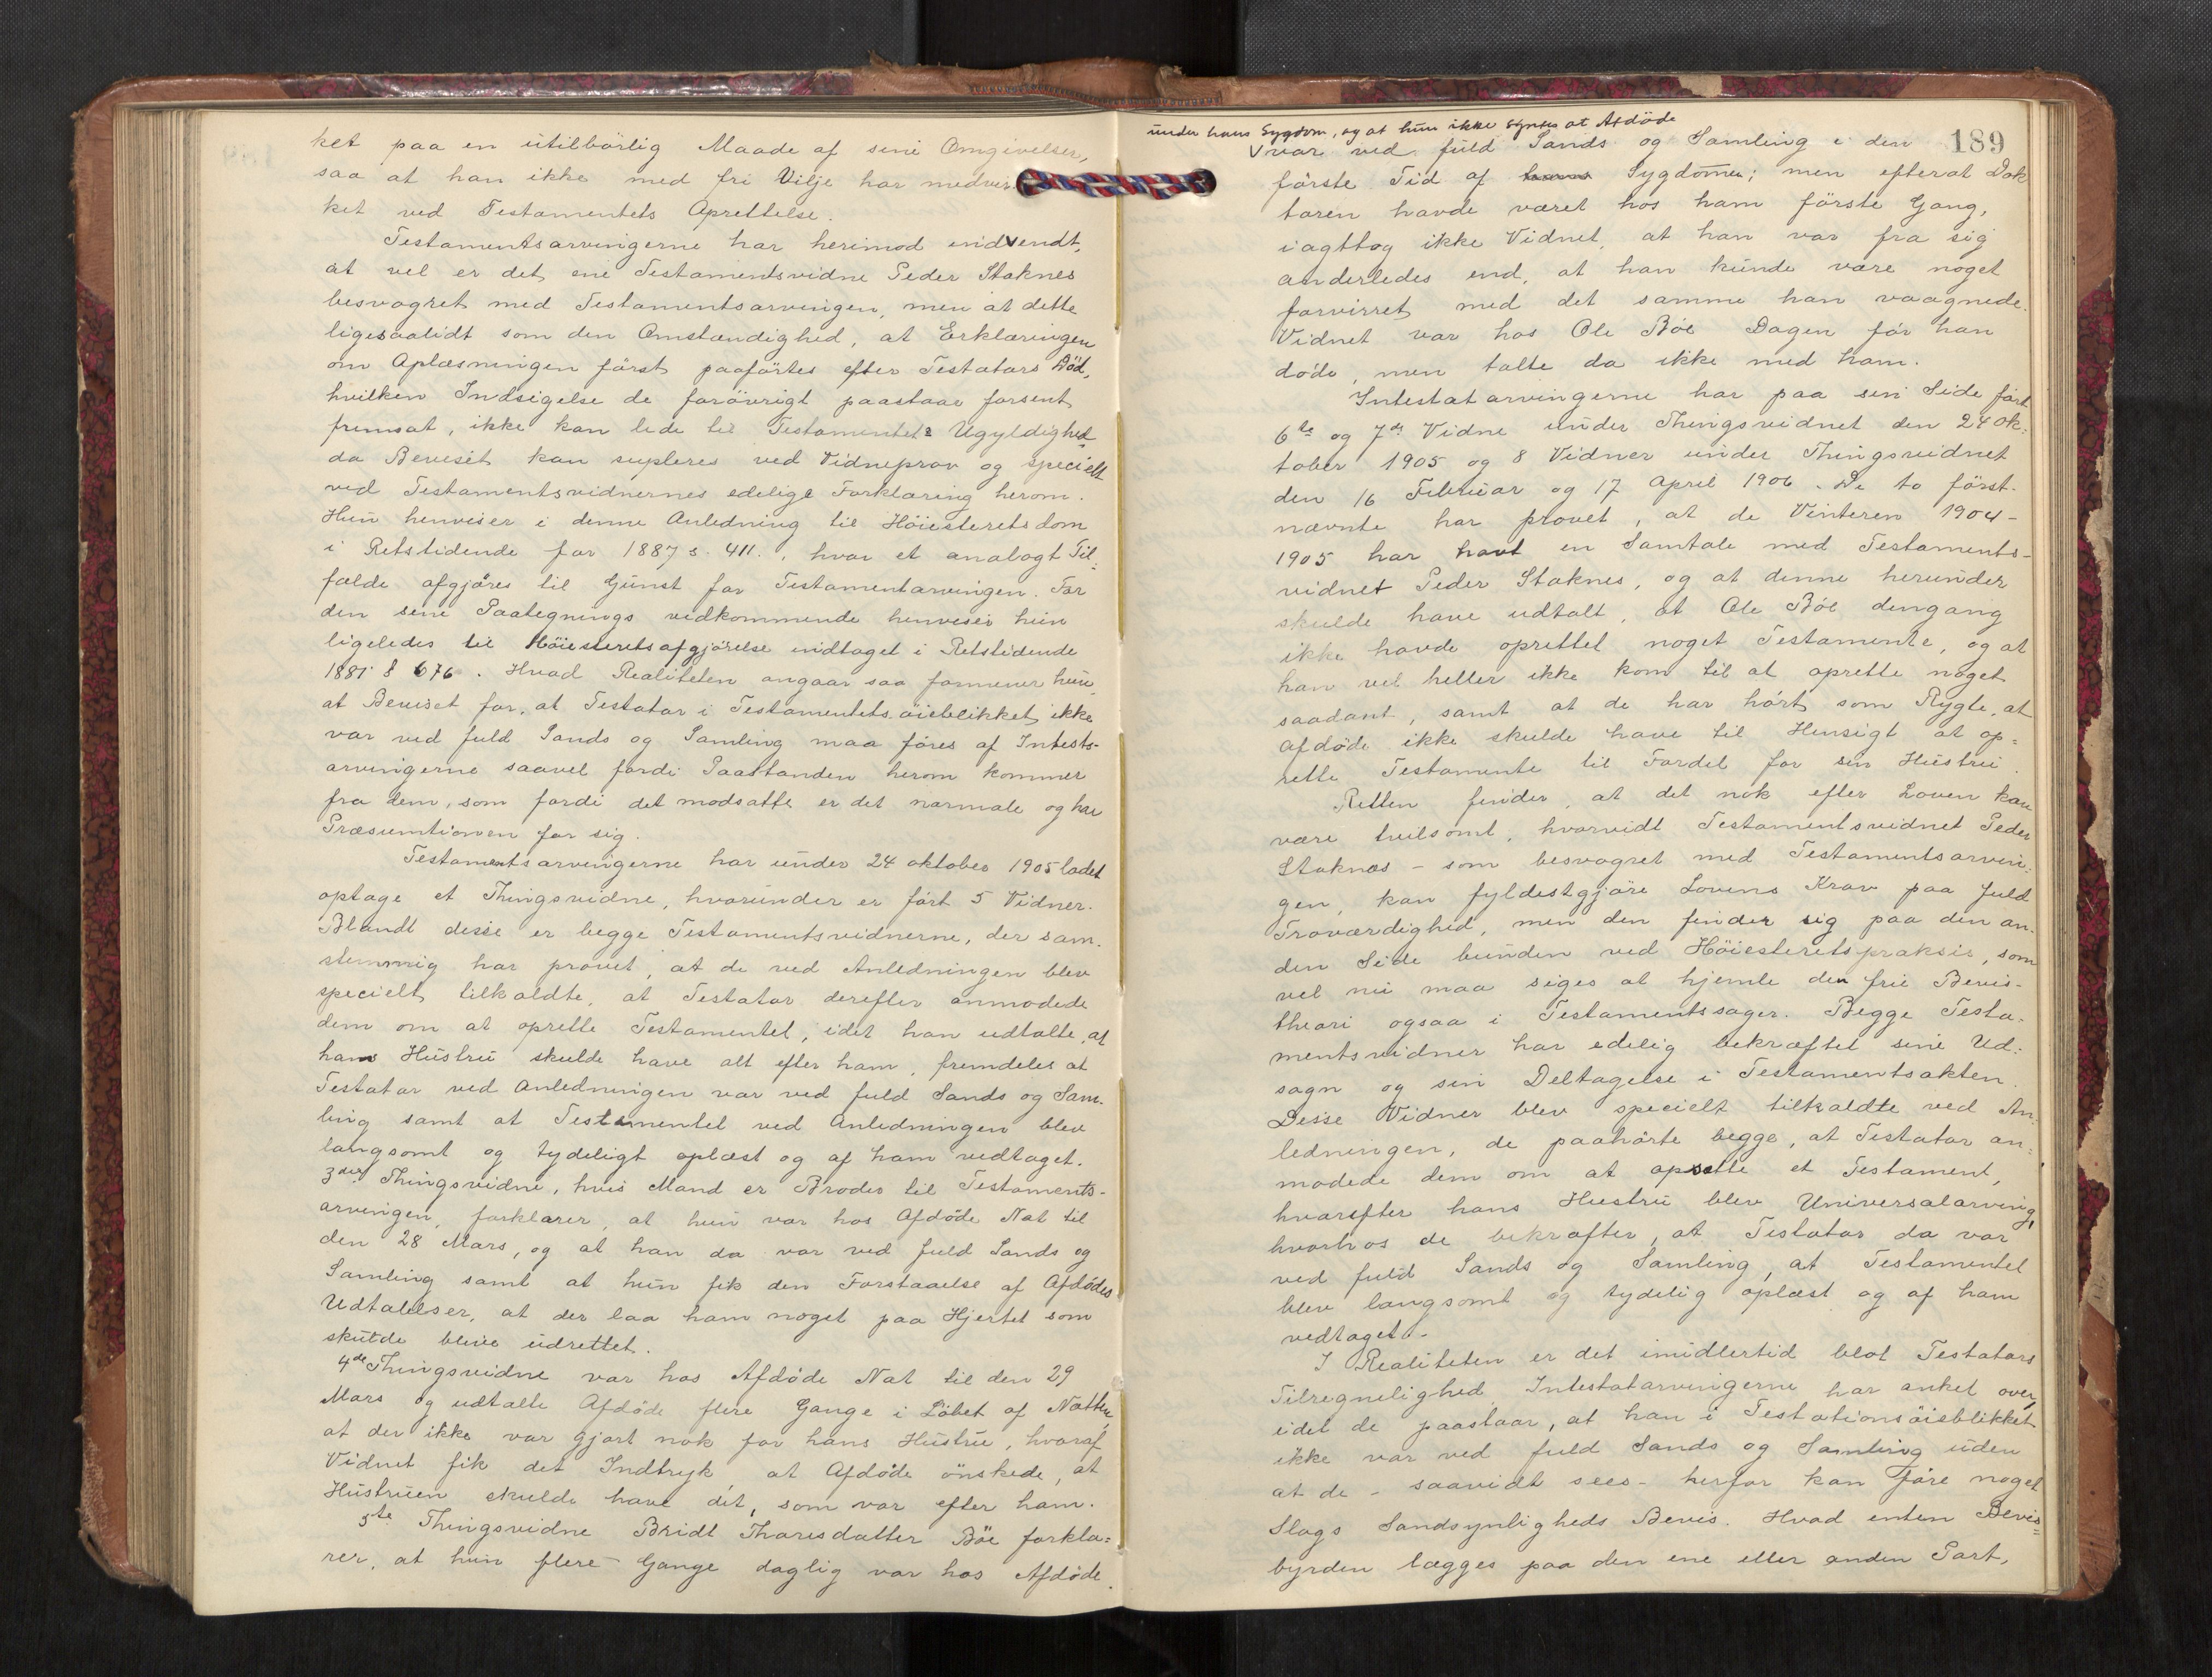 ket paa en utilbörlig Maade af sine Omgivelser,
saa at han ikke med fri Vilje har medvir
ket ved Testamentets Oprettelse.
Testamentsarvingerne har herimod indvendt,
at vel er det ene Testamentsvidne Peder Staknes
besvogret med Testamentsarvingen, men at dette
ligesaalidt som den Omstændighed, at Erklæringen
om Oplæsningen först paaförtes efter Testators Död,
hvilken Indsigelse de forövrigt paastaar forsent
fremsat, ikke kan lede til Testamentets Ugyldighed
da Beviset kan supleres ved Vidneprov og specielt
ved Testamentsvidnernes edelige Forklaring herom.
Hun henviser i denne Anledning til Höiesteretsdom
i Retstidende for 1887 s. 411., hvor et analogt Til-
fælde afgjöres til Gunst for Testamentarvingen. For
den sene Paategnings vedkommende henviser hun
ligeledes til Höiesteretsafgjörelse indtaget i Retstidende
1881 s 676. Hvad Realiteten angaar saa formener hun,
at Beviset for, at Testator i Testamentets öieblikket ikke
var ved fuld Sands og Samling maa föres af Intests-
arvingerne saavel fordi Paastanden herom kommer
fra dem, som fordi det modsatte er det normale og har
Præsumtionen for sig.
Testamentsarvingerne har under 24 oktober 1905 ladet
optage et Thingsvidne, hvorunder er fört 5 Vidner.
Blandt disse er begge Testamentsvidnerne, der sam-
stemmig har provet, at de ved Anledningen blev
specielt tilkaldte, at Testator derefter anmodede
dem om at oprette Testamentet, idet han udtalte, at
hans Hustru skulde have alt efter ham, fremdeles at
Testator ved Anledningen var ved fuld Sands og Sam-
ling samt at Testamentet ved Anledningen blev
langsomt og tydeligt oplæst og af ham vedtaget.
3die Thingsvidne, hvis Mand er Broder til Testaments-
arvingen, forklarer, at hun var hos Afdöde Nat til
den 28 Mars, og at han da var ved fuld Sands og
Samling samt at hun fik den Forstaaelse af Afdödes
Udtalelser, at der laa ham noget paa Hjertet som
skulde blive udrettet.
4de Thingsvidne var hos Afdöde Nat til den 29
Mars og udtalte Afdöde flere Gange i Löbet af Natten,
at der ikke var gjort nok for hans Hustru, hvoraf
Vidnet fik det Indtryk at Afdöde önskede, at
Hustruen skulde have dét, som var efter ham.
5te Thingsvidne Bridt Thoresdatter Böe forkla-
rer, at hun flere Gange daglig var hos Afdöde
189
under hans Sygdom, og at hun ikke syntes at Afdöde
var ved fuld Sands og Samling i den
förste Tid af Sygdomen; men efterat Dok
toren havde været hos ham förste Gang,
iagttog ikke Vidnet, at han var fra sig
anderledes end, at han kunde være noget
forvirret med det samme han vaagnede.
Vidnet var hos Ole Böe Dagen för han
döde, men talte da ikke med ham.
Intestatarvingerne har paa sin Side fört
6te og 7de Vidne under Thingsvidnet den 24 ok-
tober 1905 og 8 Vidner under Thingsvidnet
den 16 Februar og 17 April 1906. De to först-
nævnte har provet, at de Vinteren 1904-
1905 har havt en Samtale med Testaments-
vidnet Peder Staknes, og at denne herunder
skulde have udtalt, at Ole Böe dengang
ikke havde oprettet noget Testamente, og at
han vel heller ikke kom til at oprette noget
saadant, samt at de har hört som Rygte, at
afdöde ikke skulde have til Hensigt at op-
rette Testamente til Fordel for sin Hustru.
Retten finder, at det nok efter Loven kan
være tvilsomt, hvorvidt Testamentsvidnet Peder
Staknæs – som besvogret med Testamentsarvin-
gen, kan fyldestgjöre Lovens Krav paa fuld
Troværdighed, men den finder sig paa den an-
den Side bunden ved Höiesteretspraksis, som
vel nu maa siges at hjemle den frie Bevis-
theori ogsaa i Testamentssager. Begge Testa-
mentsvidner har edelig bekræftet sine Ud-
sagn og sin Deltagelse i Testamentsakten.
Disse Vidner blev specielt tilkaldte ved An-
ledningen, de paahörte begge, at Testator an-
modede dem om at opsette et Testament,
hvorefter hans Hustru blev Universalarving,
hvorhos de bekræfter, at Testator da var
ved fuld Sands og Samling, at Testamentet
blev langsomt og tydelig oplæst og af ham
vedtaget.-
I Realiteten er det imidlertid blot Testators
Tilregnelighed Intestatarvingerne har anket over,
idet de paastaar, at han i Testationsöieblikket
ikke var ved fuld Sands og Samling uden
at de – saavidt sees – herfor kan före noget
Slags Sandsynligheds Bevis. Hvad enten Bevis-
byrden lægges paa den ene eller anden Part,